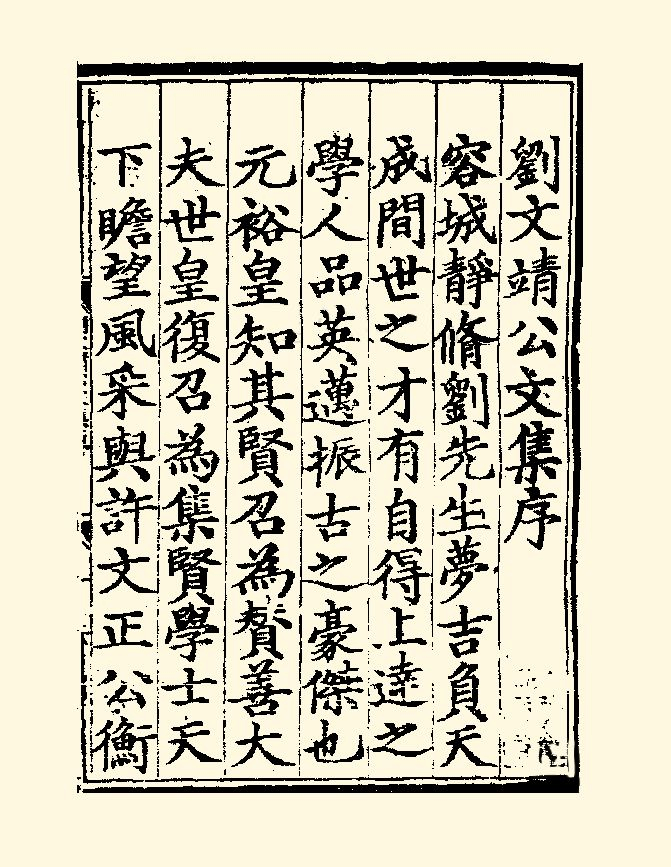 劉文靖公文集序
容城靜脩劉先生夢吉負天
成間世之才有自得上達之
學人品英邁振古之豪傑也
元裕皇知其賢召為贊善大
夫世皇復召為集賢學士天
下瞻望風采與許文正公衡